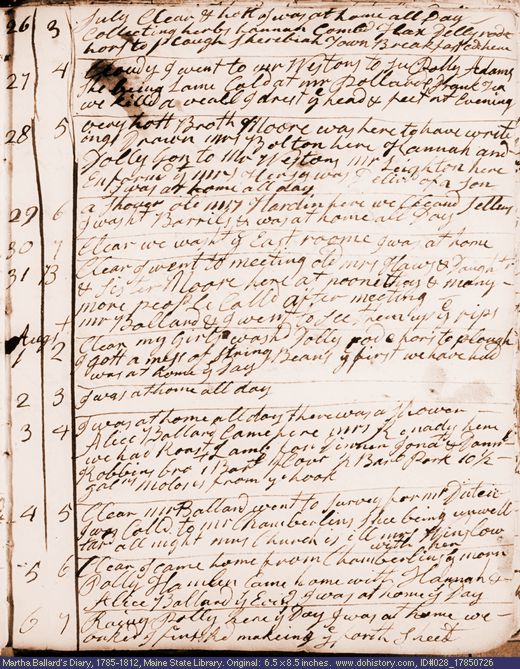 26 3 July Clear & hott I was at home all Day
Collecting herbs hannah Combd flax Dolly rode
hors to plough Sherebiah Town Breakfasted here
27 4 Cloudy I went to mr Westons to See Polly Adams
She being Lame Calld at mr Pollards Drank Tea
we killd a veall I drest ye head & feet at Evening
28 5 very hott Broth Moore was here to have writ
ings Drawn mrs Bolton here Hannah and
Dolly gon to Mr Westons mr Leighton here
Enformd yt mrs was Delivrd of a Son
I was at home all day
29 6 a shower old mrs Hardin here we Cleand Sellar
I washt Barrils & was at home all Day
30 7 Clear we washt ye East roome I was at home
31 B Clear I went to meeting old mrs Haws & Daught
& Sister Moore here at noone thos & many
more people Calld after meeting
mr Ballard & I went to See Henry
Augt 1 2 Clear my Girls washt Dolly rode hors to plough
I gott a mess of String Beans ye first we have had
was at home ye Day
2 3 I was at home all day
3 4 I was at home all day there was a shower
Alice Ballard Came here mrs Kenady here
we had Roast Lamb for dinner Jona &
Robbins bro't 1 Barl flour 1/2 Barl Pork 10 1/2
galls molases from ye hook
4 5 Clear mr Ballard went to Survey for mr Duten
I was Calld to mr Chamberlins Shee being unwell
tar all night mrs Church is ill mrs Winslow
with her
5 6 Clear I came home from Chamberlins ye morn
Polly Hamlen Came home with Hannah &
Alice Ballard ye Evng I was at home ye Day
6 7 Rainy Polly here ye Day I was at home we
ye making of forth Sheed